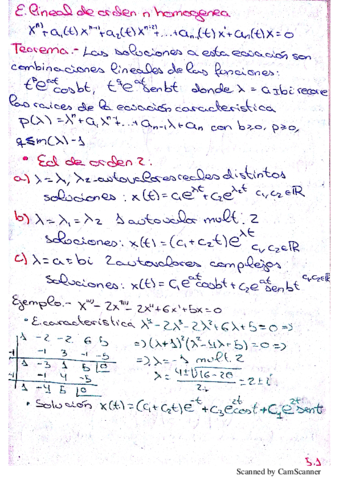 E. lineal de orden n homogenea
x^(n) + a₁(t) x^(n-1) + a₂(t) x^(n-2) + ... + aₙ₋₁(t) x' + aₙ(t) x = 0
Teorema.- Las soluciones a esta ecuación son
combinaciones lineales de las funciones:
t^p e^at cos bt, t^q e^at sen bt donde λ = a ± bi recorre
las raices de la ecuación característica
p(λ) = λⁿ + a₁ λⁿ⁻¹ + ... + aₙ₋₁ λ + aₙ con b ≥ 0, p ≥ 0,
q ≤ m(λ) - 1
• Ed de orden 2:
a) λ = λ₁, λ₂ autovalores reales distintos
soluciones: x(t) = c₁e^λ₁t + c₂e^λ₂t c₁, c₂ ∈ ℝ
b) λ = λ₁ = λ₂ 1 autovalor mult. 2
soluciones: x(t) = (c₁ + c₂t) e^λt c₁, c₂ ∈ ℝ
c) λ = a ± bi 2 autovalores complejos
soluciones: x(t) = c₁e^at cos bt + c₂e^at sen bt c₁, c₂ ∈ ℝ
Ejemplo.- x'''' - 2x''' - 2x'' + 6x' + 5x = 0
• E. caracteristica λ⁴ - 2λ³ - 2λ² + 6λ + 5 = 0 =>
1 -2 -2 6 5 => (λ+1)²(λ² - 4λ + 5) = 0 =>
-1 -1 3 -1 -5 => λ = -1 mult. 2
1 -3 1 5 0 λ = (4 ± √(16 - 20))/2 = 2 ± i
-1 -1 4 -5
1 -4 5 0
• Solución x(t) = (c₁ + c₂t) e^-t + c₃e^2t cos t + c₄e^2t sen t
5.1
Scanned by CamScanner